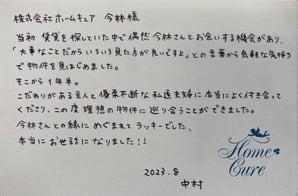 株式会社ホームキュア 今林様
当初 賃貸を探していた中で偶然今林さんとお会いする機会があり、
「大事なことだからいろいろ見た方が良いですよ」との言葉から気軽な気持ち
で物件を見はじめました。
そこから1年半。
こだわりがある主人と優柔不断な私達夫婦に本当によく付き合って
くださり、この度 理想の物件に巡り合うことができました。
今林さんとの縁にめぐまれてラッキーでした。
本当にお世話になりました!!
2023.8
中村
Home
Cure